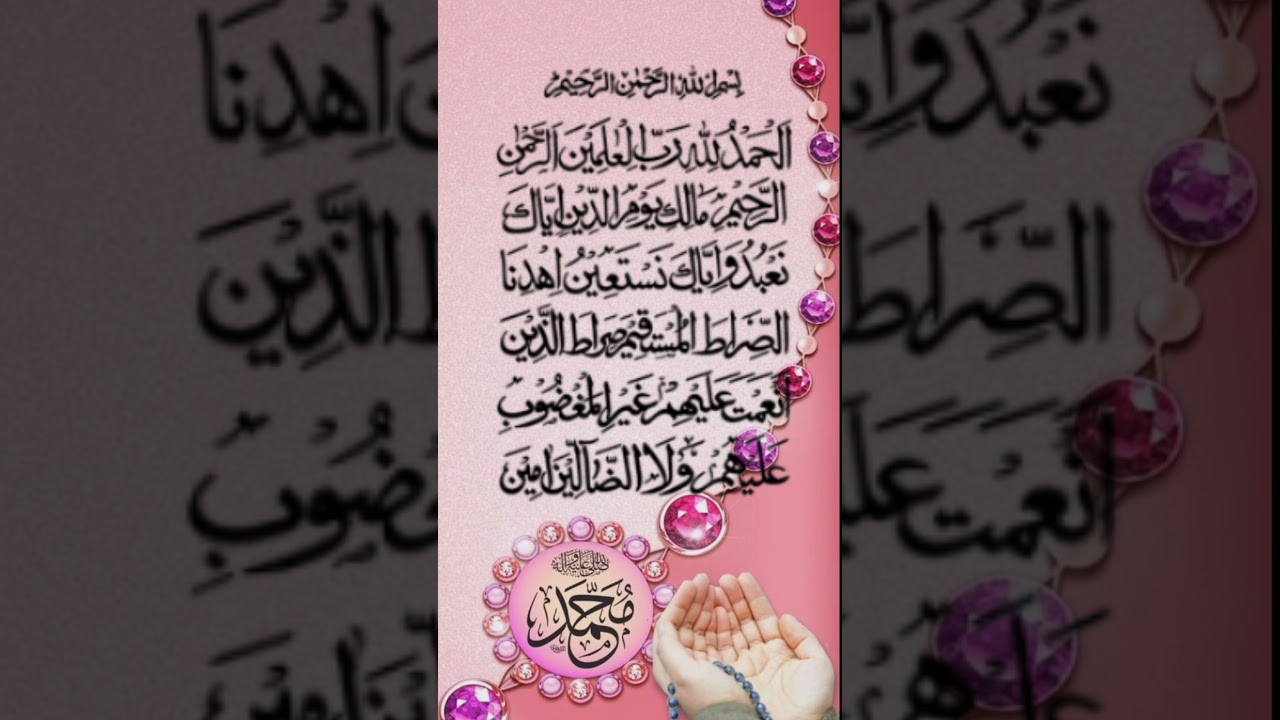 بِسْمِ اللّٰهِ الرَّحْمٰنِ الرَّحِيْمِ
اَلْحَمْدُ لِلّٰهِ رَبِّ الْعٰلَمِيْنَ اَلرَّحْمٰنِ
الرَّحِيْمِ مَالِكِ يَوْمِ الدِّيْنِ اِيَّاكَ
نَعْبُدُ وَاِيَّاكَ نَسْتَعِيْنُ اِهْدِنَا
الصِّرَاطَ الْمُسْتَقِيْمَ صِرَاطَ الَّذِيْنَ
اَنْعَمْتَ عَلَيْهِمْ غَيْرِ الْمَغْضُوْبِ
عَلَيْهِمْ وَلَا الضَّآلِّيْنَ اٰمِيْنَ
مُحَمَّد